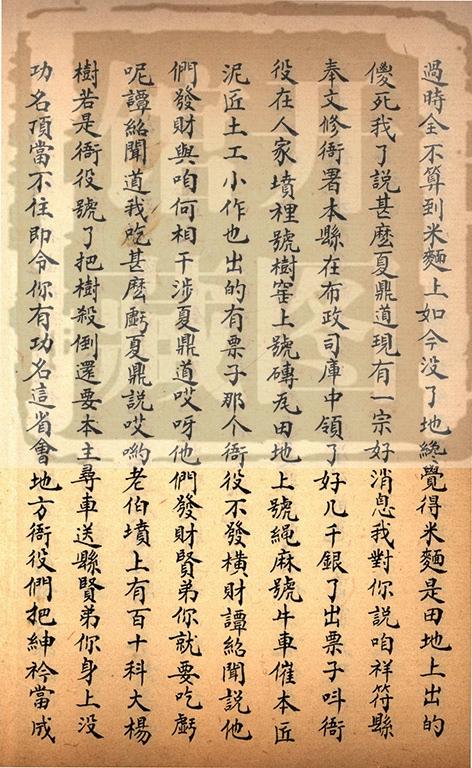 過時全不算到米麵上如今没了地纔覺得米麵是田地上出的
儍死我了說甚麽夏鼎道現有一宗好消息我對你說咱祥符縣
奉文修衙署本縣在布政司庫中領了好几千銀了出票子呌衙
役在人家墳裡號樹窑上號磚瓦田地上號繩麻號牛車催本匠
泥匠土工小作也出的有票子那个衙役不發橫財譚紹聞說他
們發財與咱何相干涉夏鼎道哎呀他們發財賢弟你就要吃虧
呢譚紹聞道我吃甚麽虧夏鼎說哎喲老伯墳上有百十科大楊
樹若是衙役號了把樹殺倒還要本主尋車送縣賢弟你身上没
功名頂當不住即令你有功名這省會地方衙役們把紳衿當成